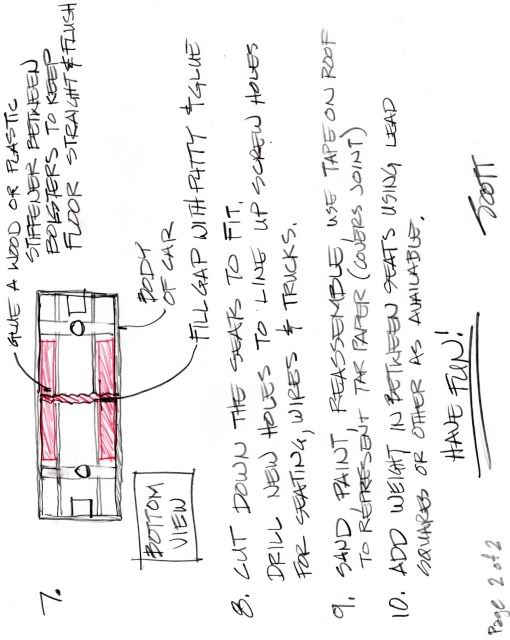 7.
GLUE A WOOD OR PLASTIC
STIFFENER BETWEEN
BOLSTERS TO KEEP
FLOOR STRAIGHT & FLUSH
BODY
OF CAR
FILL GAP WITH PUTTY & GLUE
BOTTOM
VIEW
8. CUT DOWN THE SEATS TO FIT.
DRILL NEW HOLES TO LINE UP SCREW HOLES
FOR SEATING, WIRES & TRUCKS.
9. SAND, PAINT, REASSEMBLE, USE TAPE ON ROOF
TO REPRESENT TAR PAPER (COVERS JOINT)
10. ADD WEIGHT IN BETWEEN SEATS USING LEAD
SQUARES OR OTHER AS AVAILABLE.
HAVE FUN!
SCOTT
Page 2 of 2